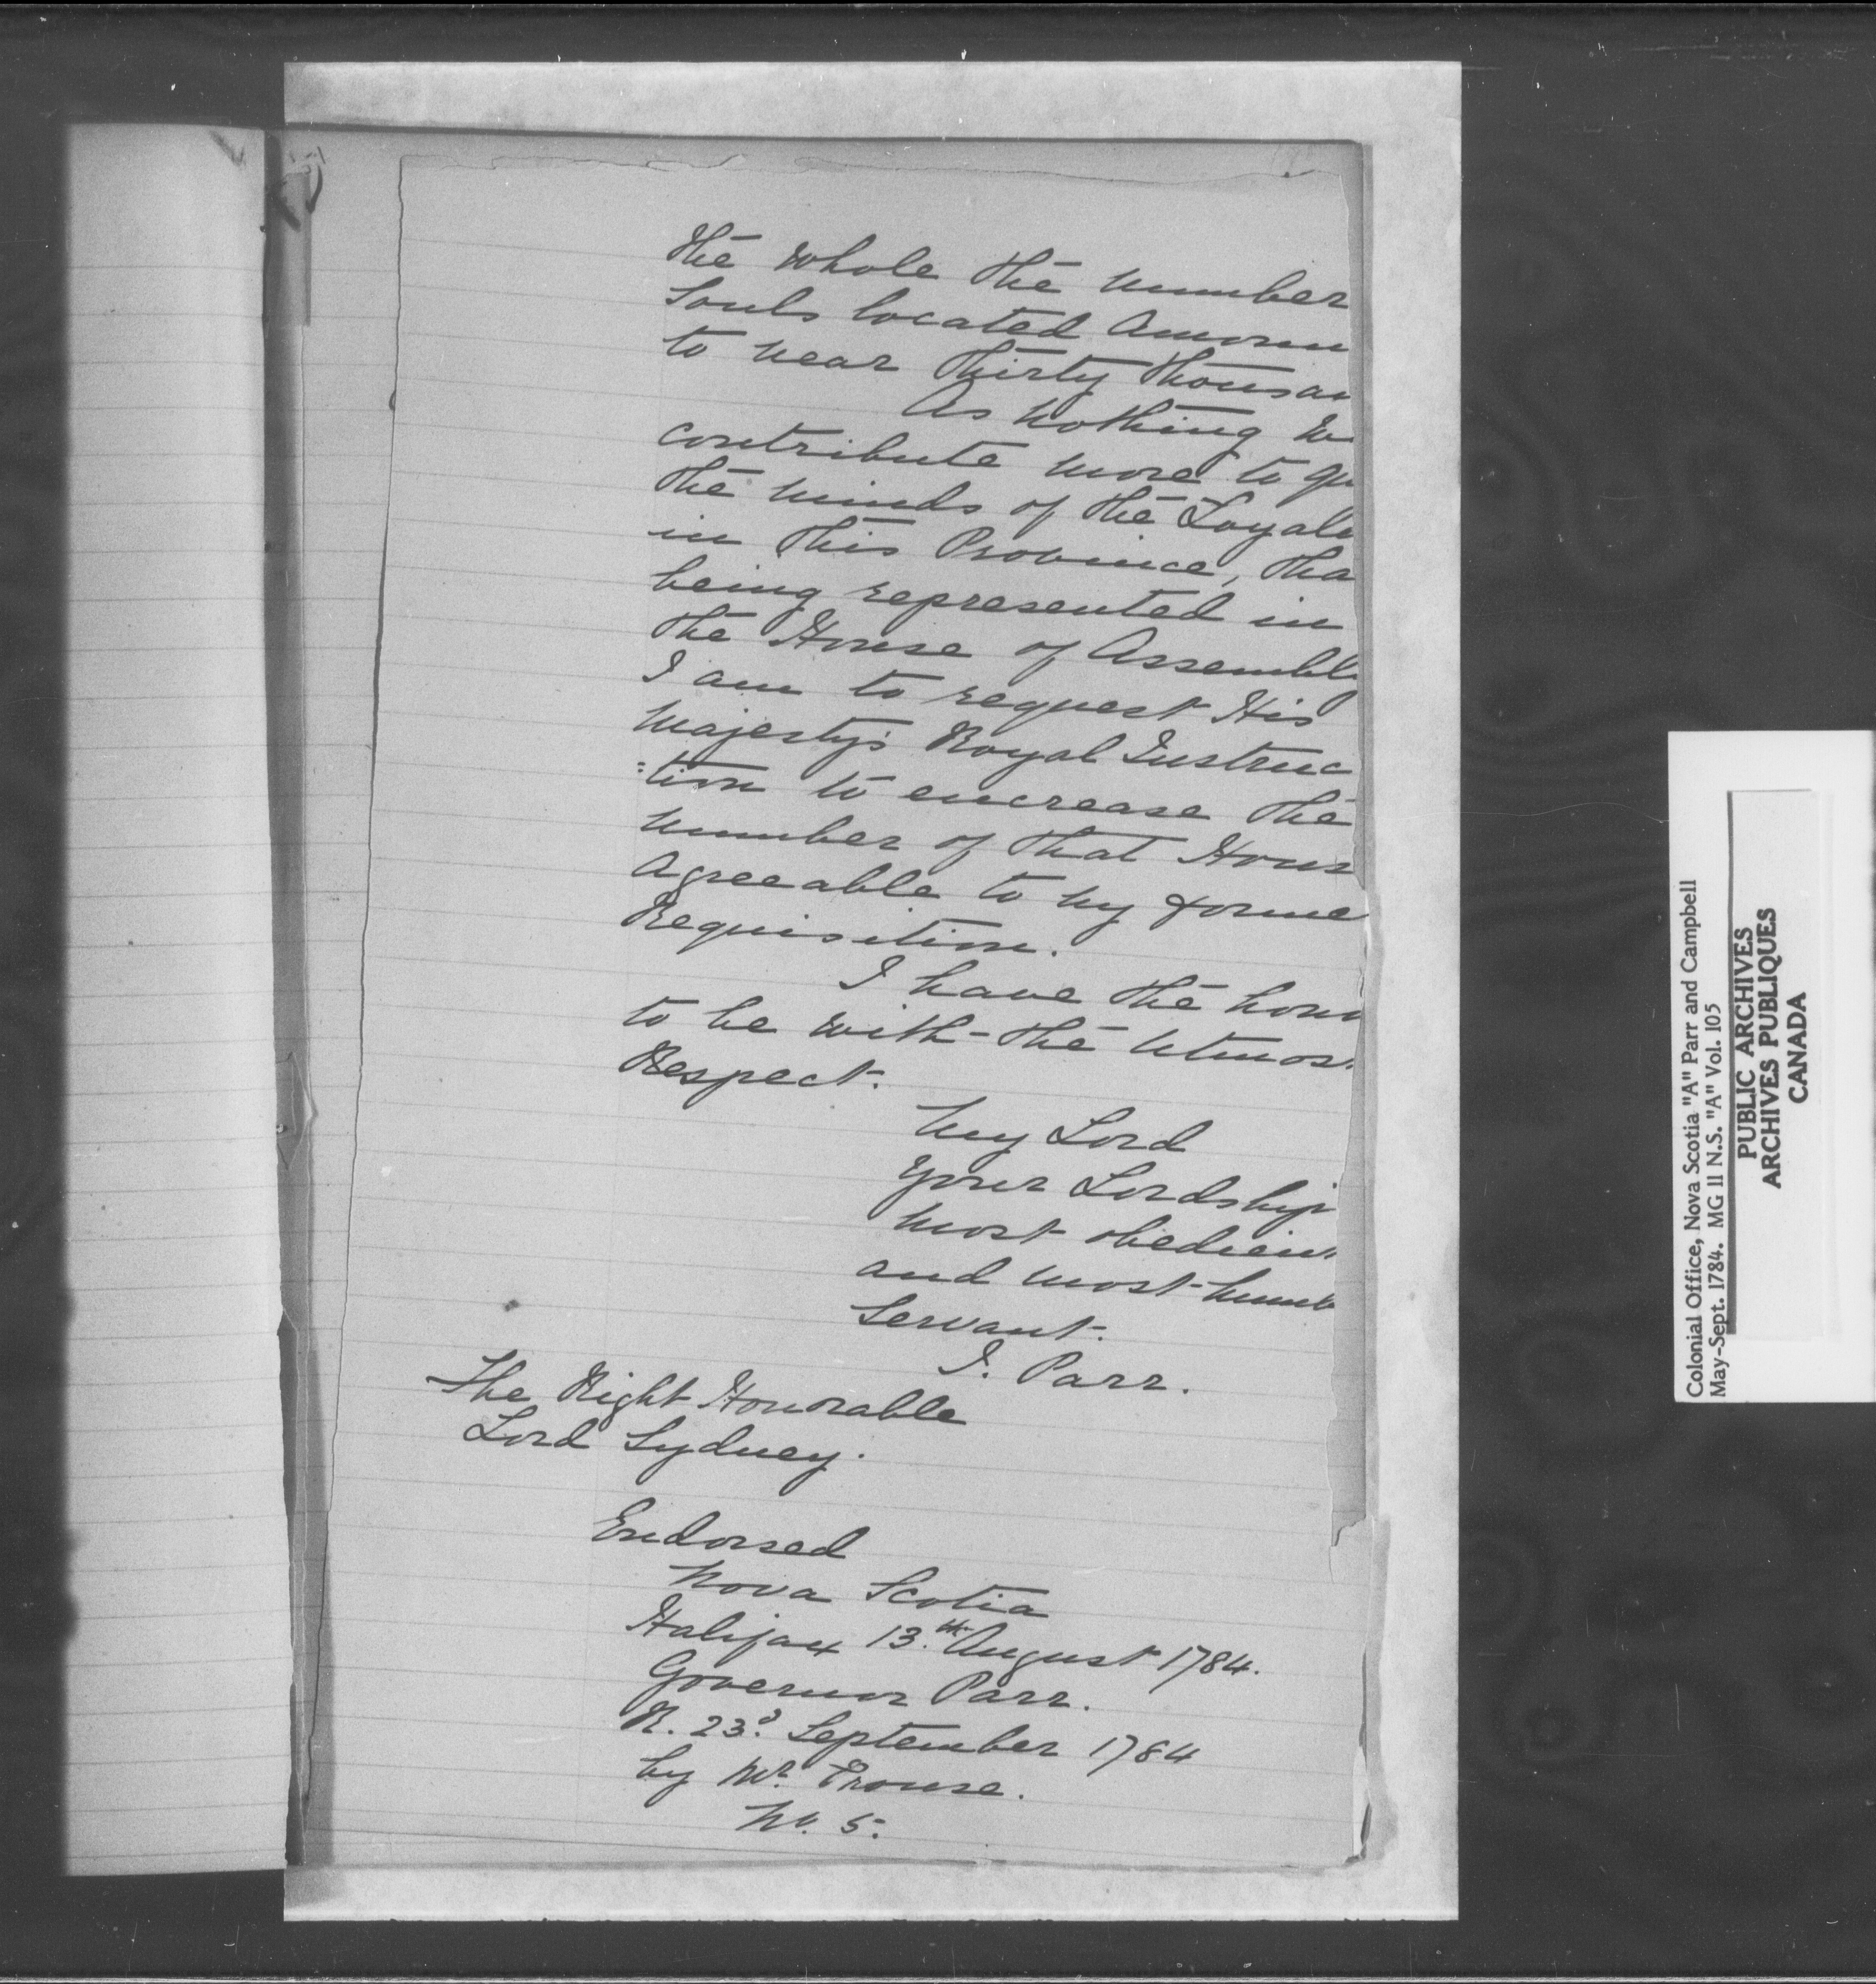 the whole the number
Souls located Amoun
to near thirty thousan
As nothing w
contribute more to qu
the minds of the Loyali
in this Province, tha
being represented in
the House of Assembly
I am to request His
Majesty's Royal Instruc
=tion to encrease the
number of that Hous
Agreeable to my forme
Requisition.
I have the hono
to be with the utmos
Respect.
My Lord
Your Lordship
most obedien
and most humb
Servant.
J. Parr.
The Right Honorable
Lord Sydney.
Endorsed
Nova Scotia
Halifax 13.th August 1784.
Governor Parr.
R. 23d. September 1784
by Mr. Prouse.
No. 5.
Colonial Office, Nova Scotia "A" Parr and Campbell
May-Sept. 1784. MG 11 N.S. "A" Vol. 105
PUBLIC ARCHIVES
ARCHIVES PUBLIQUES
CANADA